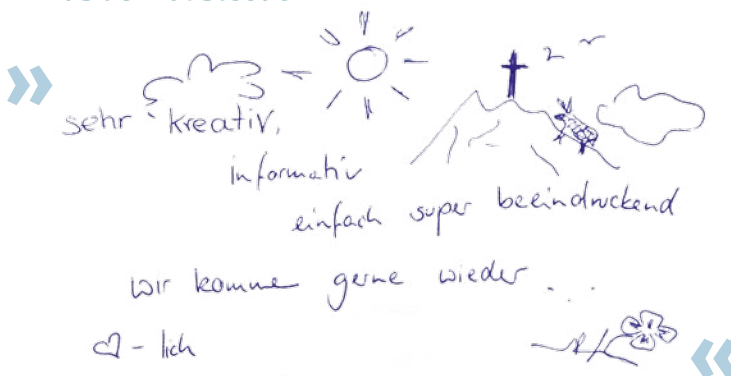 »
sehr kreativ,
informativ
einfach super beeindruckend
wir komme gerne wieder ...
♡-lich
«